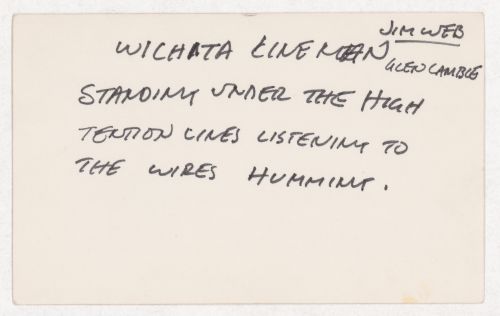 JIM WEB
WICHITA LINEMEN
GLEN CAMBLE
STANDING UNDER THE HIGH
TENTION LINES LISTENING TO
THE WIRES HUMMING.